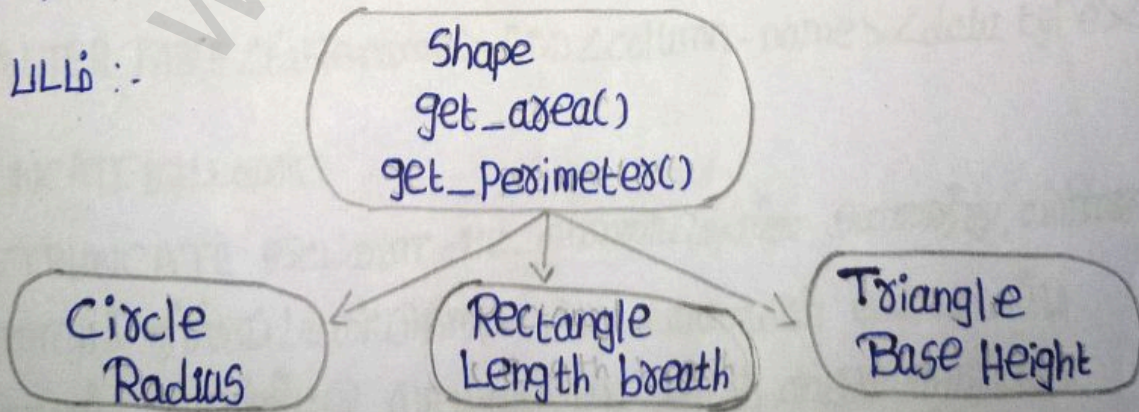 படம் :-
Shape
get_area()
get_perimeter()
Circle
Radius
Rectangle
Length breath
Triangle
Base Height